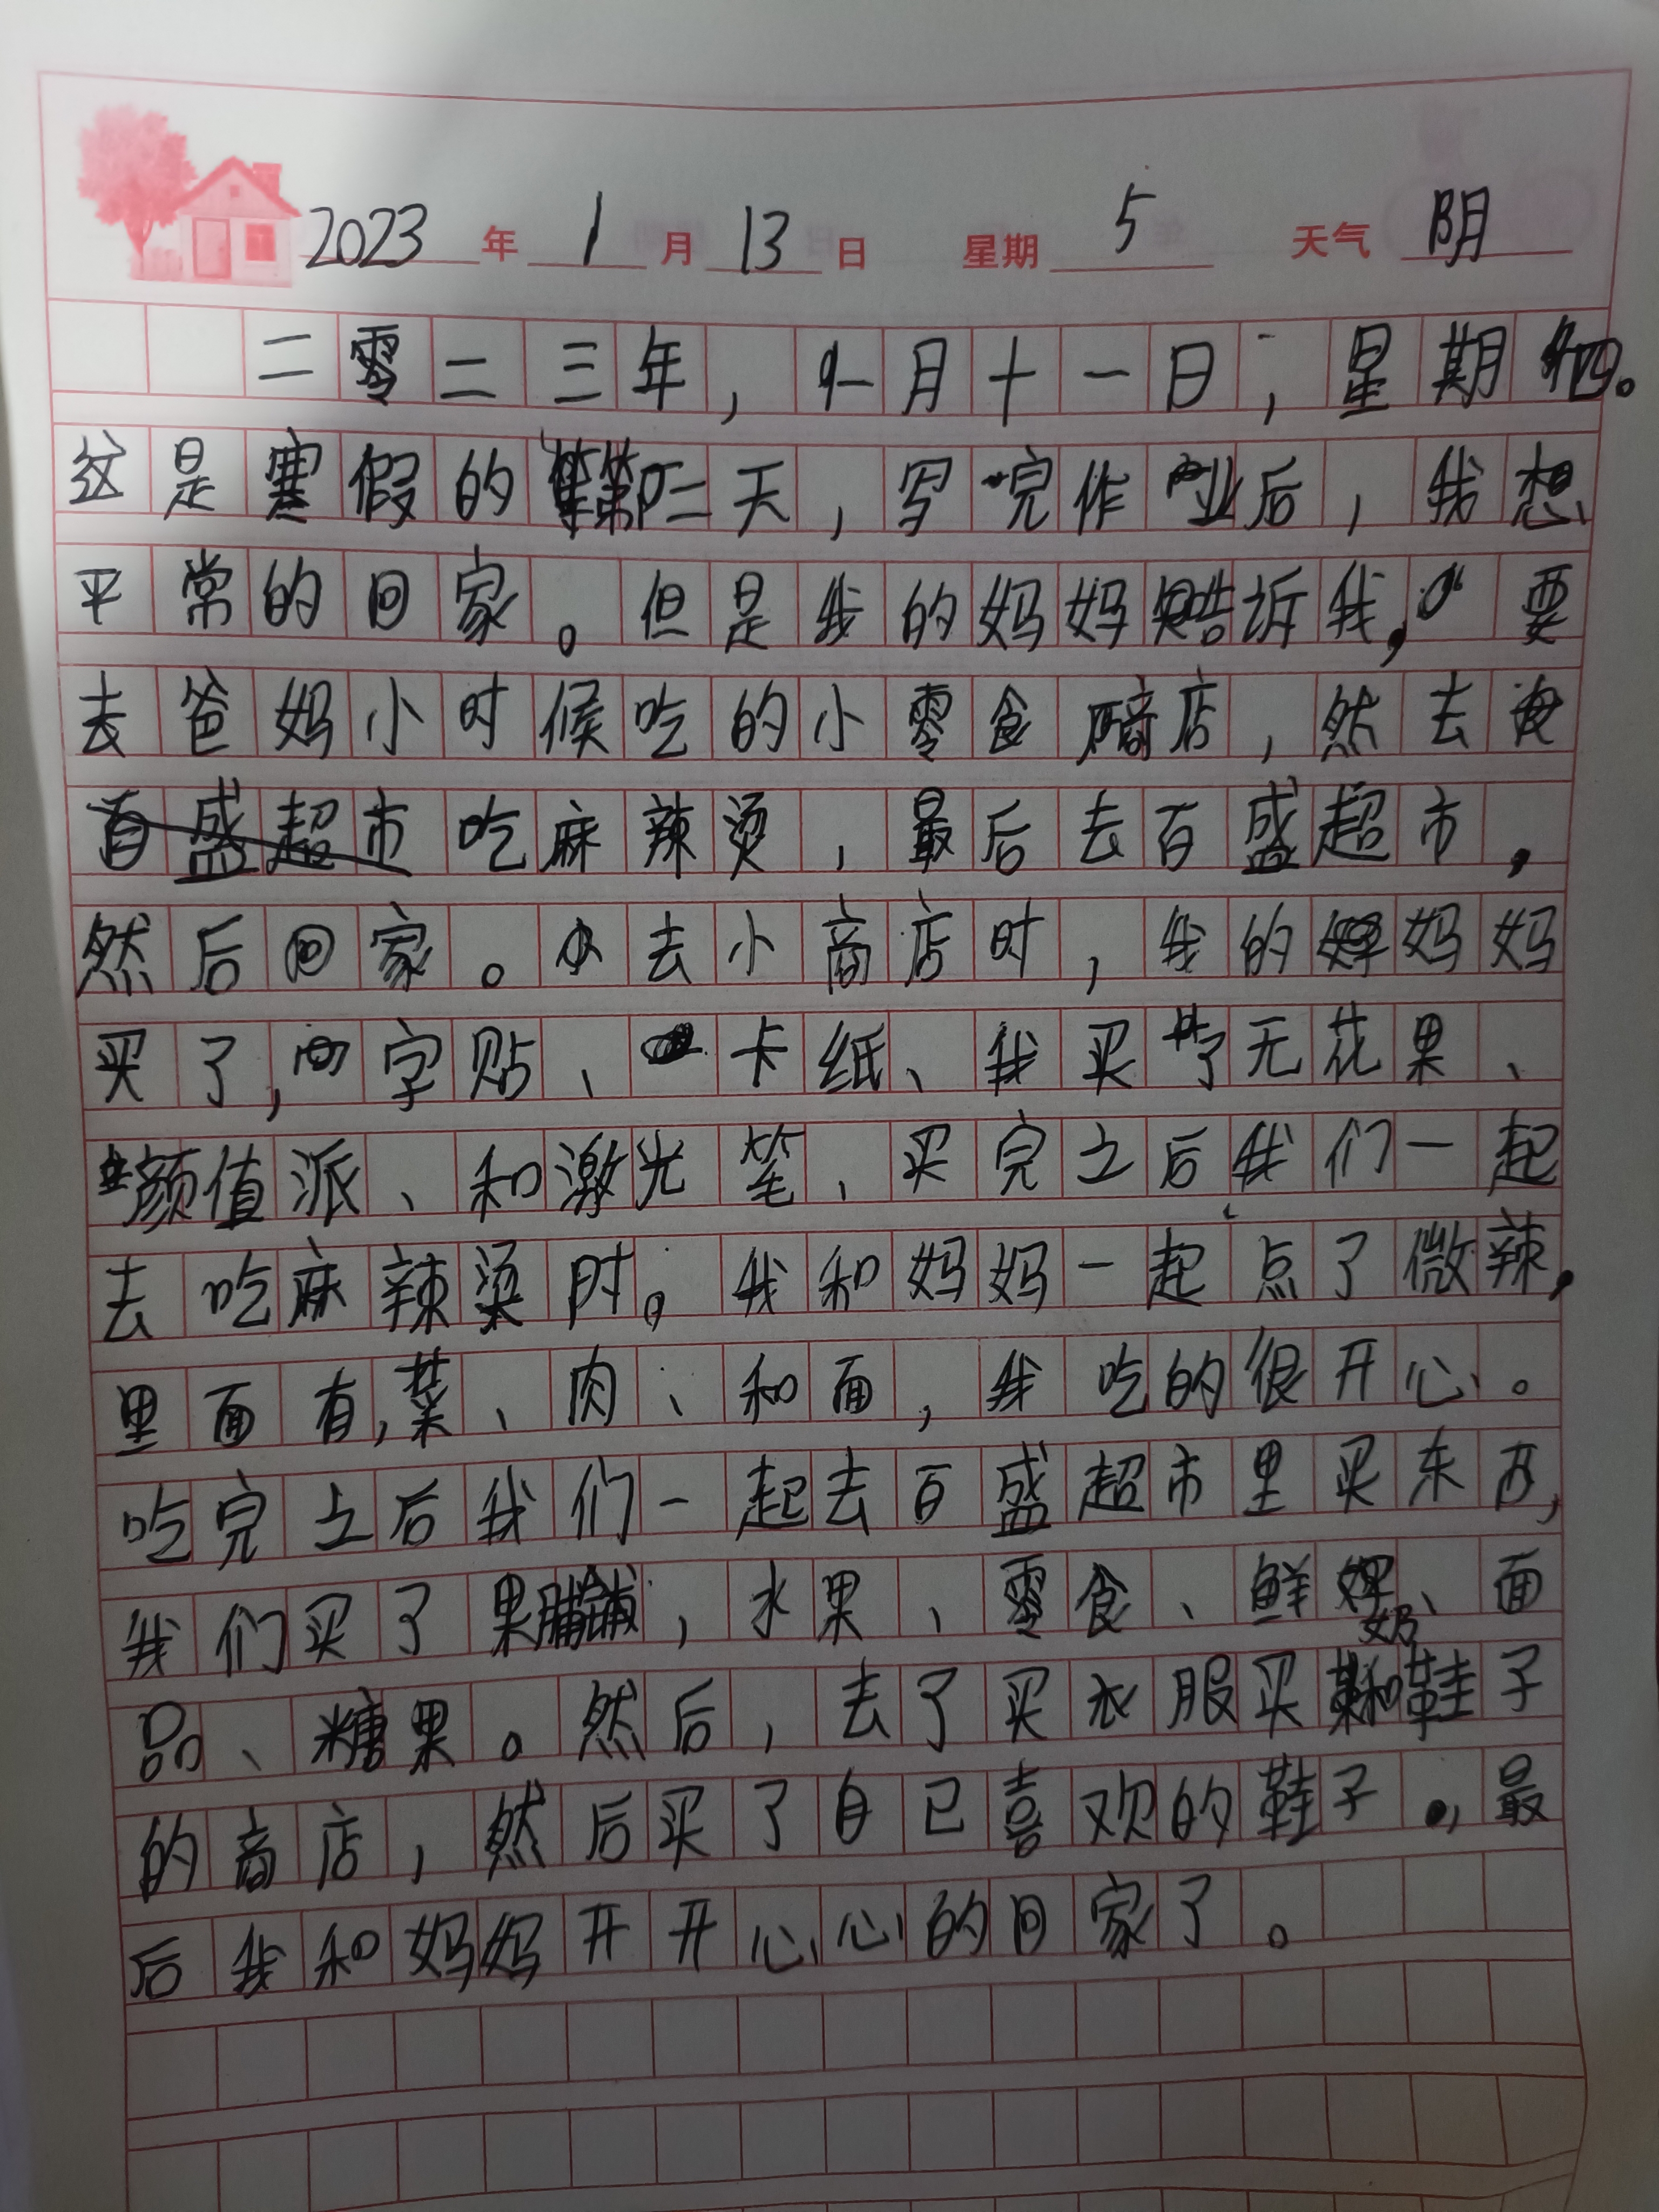 2023年1月13日 星期5 天气阴
二零二三年，一月十一日，星期四。
这是寒假的第二天，写完作业后，我想
平常的回家。但是我的妈妈告诉我，要
去爸妈小时候吃的小零食商店，然去
吃麻辣烫，最后去百盛超市，
然后回家。去小商店时，我的妈妈
买了，字贴、卡纸、我买了无花果、
颜值派、和激光笔、买完之后我们一起
去吃麻辣烫时。我和妈妈一起点了微辣，
里面有，菜、肉、和面，我吃的很开心。
吃完之后我们一起去百盛超市里买东西，
我们买了果脯，水果、零食、鲜奶、面
品、糖果。然后，去了买衣服买和鞋子
的商店，然后买了自己喜欢的鞋子，最
后我和妈妈开开心心的回家了。